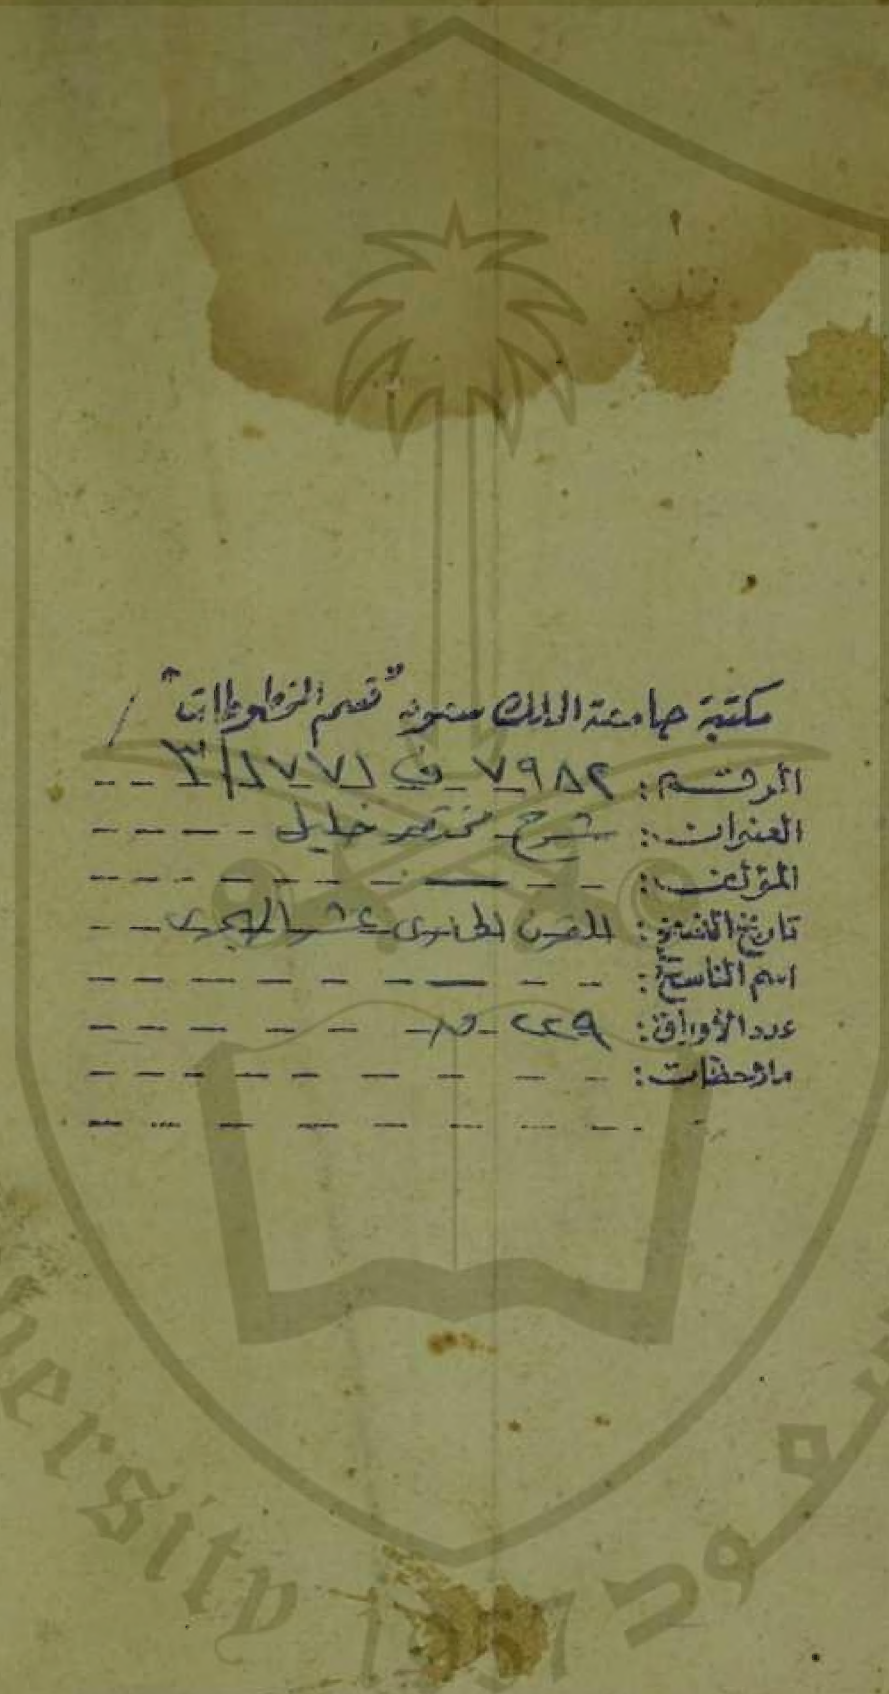 مكتبة جامعة الملك سعود "قسم المخطوطات"
الرقم: ٧٩٨٢ ف ١٧٧١/٣
العنوان: شرح مختصر خليل
المؤلف: —
تاريخ النسخ: القرن الحادي عشر الهجري
اسم الناسخ: —
عدد الأوراق: ٢٢٩ ق
ملاحظات:
ersity
1957
سعود